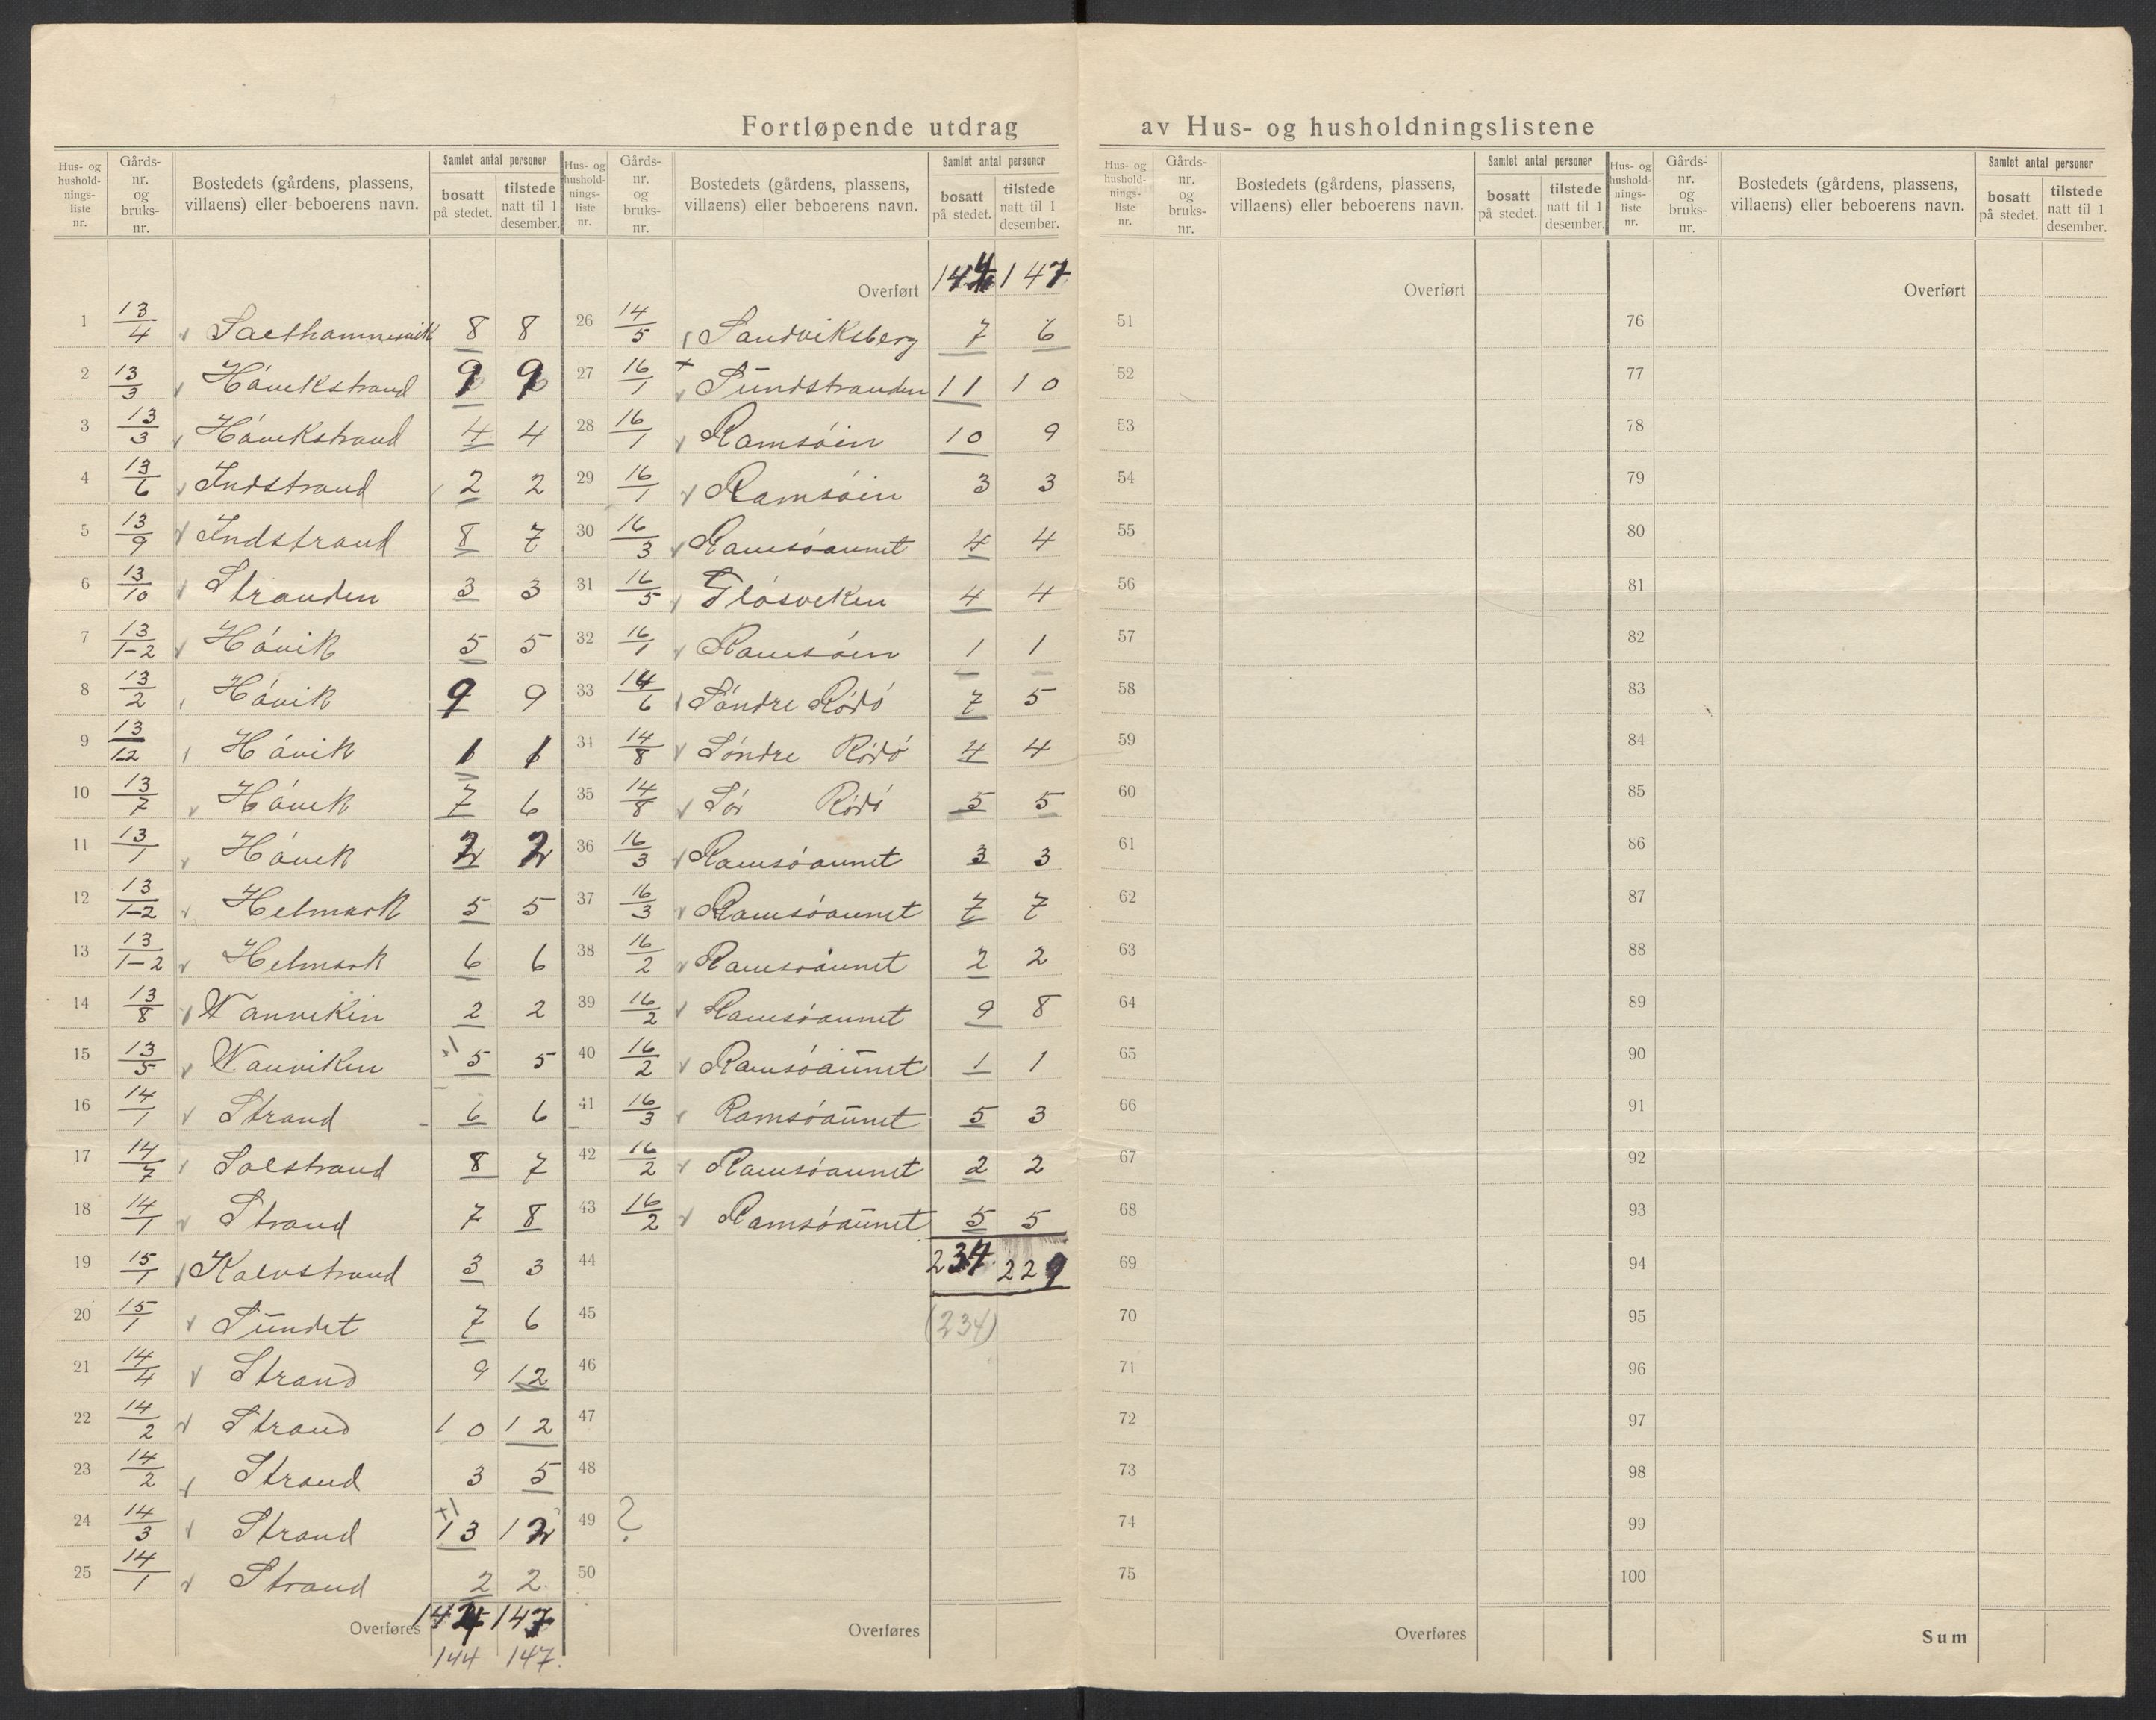 Fortløpende utdrag av Hus- og husholdningslistene
Hus- og husholdnings-liste nr. | Gårds-nr. og bruks-nr. | Bostedets (gårdens, plassens, villaens) eller beboerens navn. | Samlet antal personer | bosatt på stedet. | tilstede natt til 1 desember.
1 13/4 Salthammervik 8 8
2 13/3 Hávikstrand 9 9
3 13/3 Hávikstrand 4 4
4 13/6 Indstrand 2 2
5 13/9 Indstrand 8 7
6 13/10 Stranden 3 3
7 13/1-2 Hávik 5 5
8 13/2 Hávik 9 9
9 13/1-2 Hávik 1 1
10 13/7 Hávik 7 6
11 13/1 Hávik 2 2
12 13/1-2 Helmark 5 5
13 13/1-2 Helmark 6 6
14 13/8 Vanvikin 2 2
15 13/5 Vanviken +1 5 5
16 14/1 Strand 6 6
17 14/7 Solstrand 8 7
18 14/1 Strand 7 8
19 15/1 Kalvstrand 3 3
20 15/1 Sūndet 7 6
21 14/4 Strand 9 12
22 14/2 Strand 10 12
23 14/2 Strand 3 5
24 14/3 Strand +1 13 12
25 14/1 Strand 2 2
Overføres 144 147
144 147.
Hus- og husholdnings-liste nr. | Gårds-nr. og bruks-nr. | Bostedets (gårdens, plassens, villaens) eller beboerens navn. | Samlet antal personer | bosatt på stedet. | tilstede natt til 1 desember.
Overført 144 147
26 14/5 Sandviksberg 7 6
27 16/1 + Sūndstranden 11 10
28 16/1 Ramsóin 10 9
29 16/1 Ramsóin 3 3
30 16/3 Ramsóaunet 4 4
31 16/5 Flósviken 4 4
32 16/1 Ramsóin 1 1
33 14/6 Sóndre Ródó 7 5
34 14/8 Sóndre Ródó 4 4
35 14/8 Sór Ródó 5 5
36 16/3 Ramsóaunet 3 3
37 16/3 Ramsóaunet 7 7
38 16/2 Ramsóaunet 2 2
39 16/2 Ramsóaunet 9 8
40 16/2 Ramsóaūnet 1 1
41 16/3 Ramsóaūnet 5 3
42 16/2 Ramsóaunet 2 2
43 16/2 Ramsóaūnet 5 5
44 234 229
45 (234)
46
47
48
49 ?
50
Overføres
Hus- og husholdnings-liste nr. | Gårds-nr. og bruks-nr. | Bostedets (gårdens, plassens, villaens) eller beboerens navn. | Samlet antal personer | bosatt på stedet. | tilstede natt til 1 desember.
Overført
51
52
53
54
55
56
57
58
59
60
61
62
63
64
65
66
67
68
69
70
71
72
73
74
75
Overføres
Hus- og husholdnings-liste nr. | Gårds-nr. og bruks-nr. | Bostedets (gårdens, plassens, villaens) eller beboerens navn. | Samlet antal personer | bosatt på stedet. | tilstede natt til 1 desember.
Overført
76
77
78
79
80
81
82
83
84
85
86
87
88
89
90
91
92
93
94
95
96
97
98
99
100
Sum